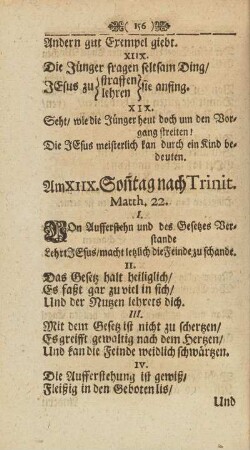 ( 156 )
Andern gut Exempel giebt.
XIIX.
Die Jünger fragen seltsam Ding/
JEsus zu {straffen/ lehren} sie anfing.
XIX.
Seht/ wie die Jünger heut doch um den Vor-
gang streiten!
Die JEsus meisterlich kan durch ein Kind be-
deuten.
Am XIIX. Soñtag nach Trinit.
Matth. 22.
I.
VOn Aufferstehn und des Gesetzes Ver-
stande
Lehrt JEsus/ macht letzlich die Feinde zu schande.
II.
Das Gesetz halt heiliglich/
Es faßt gar zu viel in sich/
Und der Nutzen lehrets dich.
III.
Mit dem Gesetz ist nicht zu schertzen/
Es greifft gewaltig nach dem Hertzen/
Und kan die Feinde weidlich schwärtzen.
IV.
Die Aufferstehung ist gewiß/
Fleißig in den Geboten lis/
Und